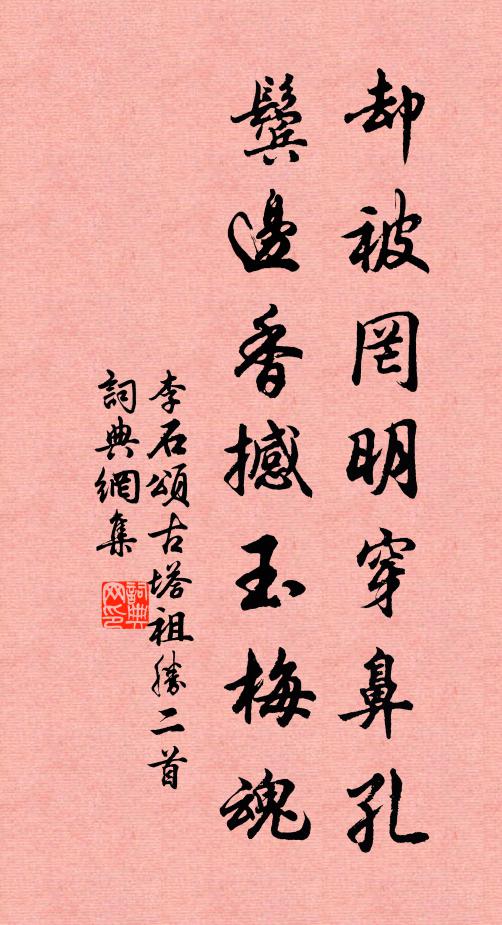 却被罔明穿鼻孔
鬢邊香撼玉梅魂
李石頌古塔祖勝二首
詞典網集
詞典
网印